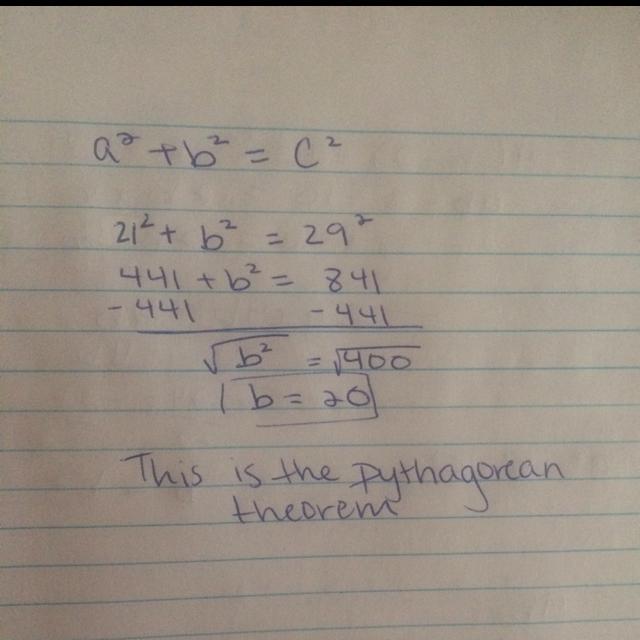 a² + b² = c²
21² + b² = 29²
441 + b² = 841
- 441 - 441
√b² = √400
b = 20
This is the pythagorean
theorem